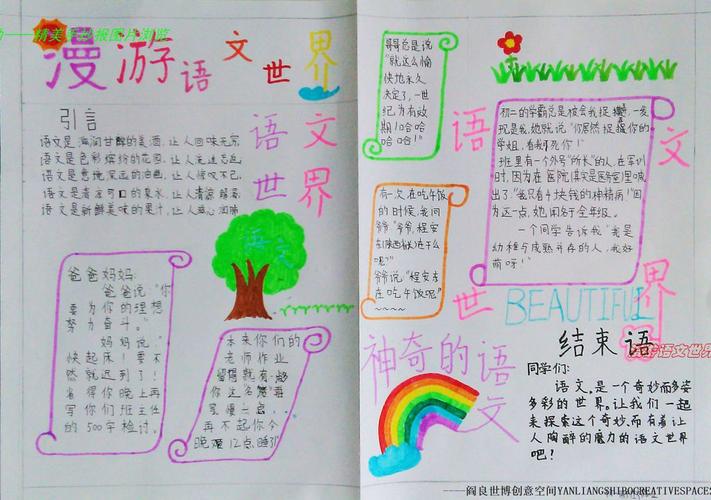 精美手抄报图片浏览
漫游语文世界
引言
语文是
甘醇的美酒,让人回味无穷
语文是色彩缤纷的花园,让人
语文是
语文是
语文是新鲜美味的果汁,让人
语文
世界
语文
爸爸妈妈:
爸爸说:"你
要为你的理想
努力奋斗。"
妈妈说:"
快起床!要不
然就迟到了!
省得你晚上再
写你们班主任
的500字检讨。
本来你们的
老师作业
留得就有一多
你这名
再不起你今
晚 12点睡!"
哥哥总是说
"就这么愉
快地永久
决定了,一世
纪为有效
期!哈哈
哈哈!"
有一次,在吃午饭
的时候,我问
爷爷:"爷爷,程安
在干么
呢?"
爷爷说:"程安去
在吃午饭呢"
~~~~
初二的学霸总是被会我捉 ,一发
现是我,她就说:"你居然捉 你的
学姐,看我 死你!"
班里有一个外号"所长"的人,在军训
时,因为在医院 喊
出了:"我只有4块钱的神精病!"因
为这一点,她闻名于全年级。
一个同学告诉我:"我是
幼稚与成熟并存的人,我好
萌呀!"
语
文
世
界
BEAUTIFUL
神奇的语
文
结束语
语文世界
同学们:
语文,是一个奇妙而多姿
多彩的世界。让我们一起
来探索这个奇妙,而有着让
人陶醉的魔力的语文世界
吧?
——阎良世博创意空间YANLIANGSHIBOCREATIVESPACE